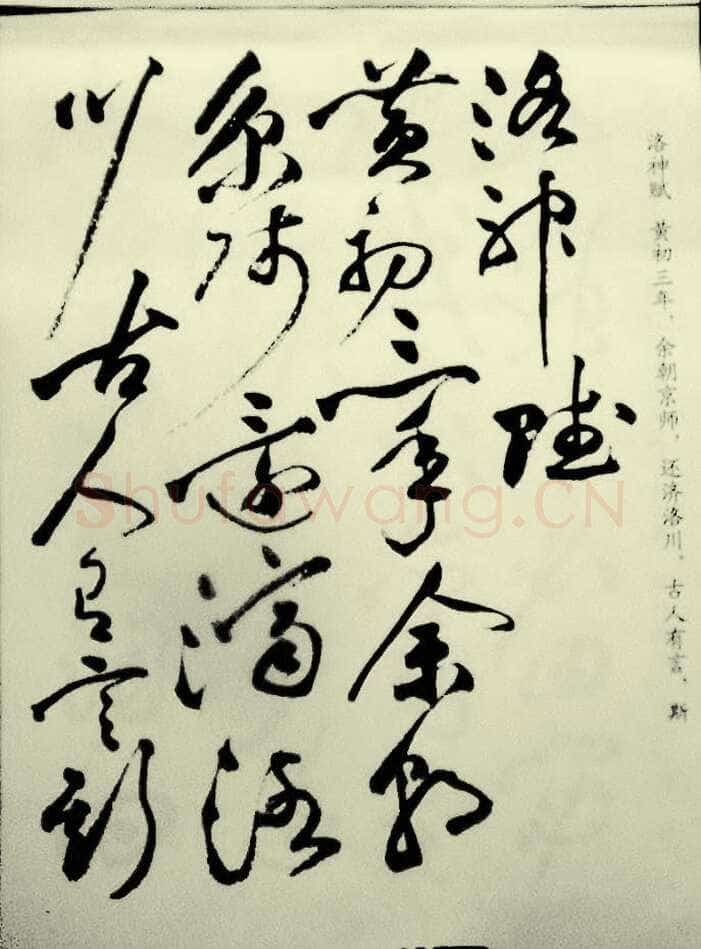 洛神赋 黄初三年，余朝京师，还济洛川，古人有言，斯
洛神賦
黄初三年余朝
京師還濟洛
川古人有言斯
Shufawang.CN